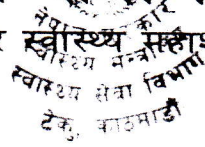 नेपाल सरकार
र स्वास्थ्य
स्वास्थ्य मन्त्रा
स्वास्थ्य सेवा विभाग
टेकु, काठमाडौं